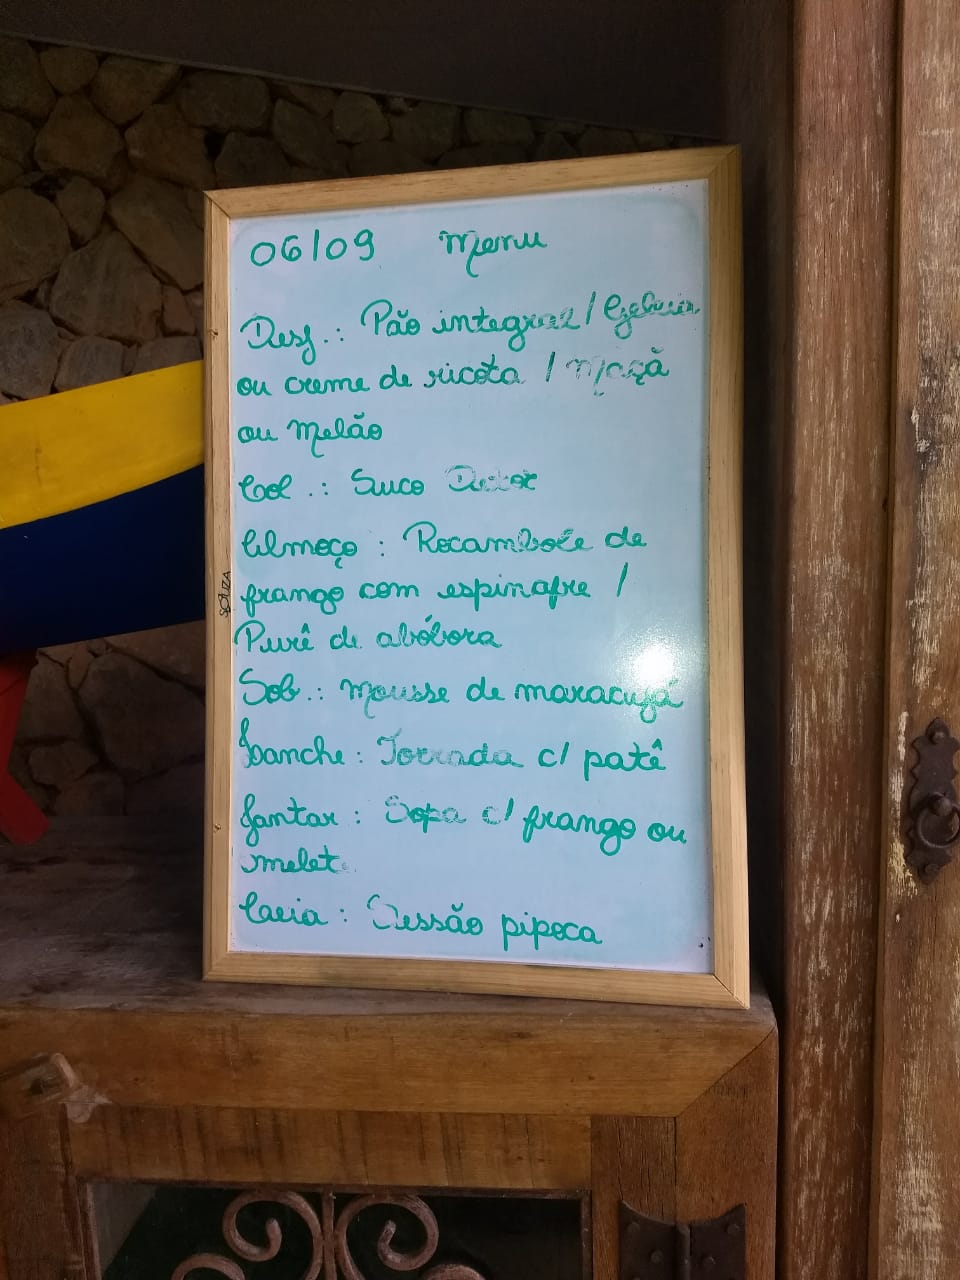 06/09 Menu
Desj.: Pão integral / Geleia
ou creme de ricota / Maçã
ou Melão
Col.: Suco Detox
Almoço: Rocambole de
frango com espinafre /
Purê de abóbora
Sob.: Mousse de maracujá
Lanche: Torrada c/ patê
Jantar: Sopa c/ frango ou
omelete
Ceia: Sessão pipoca
SOUZA